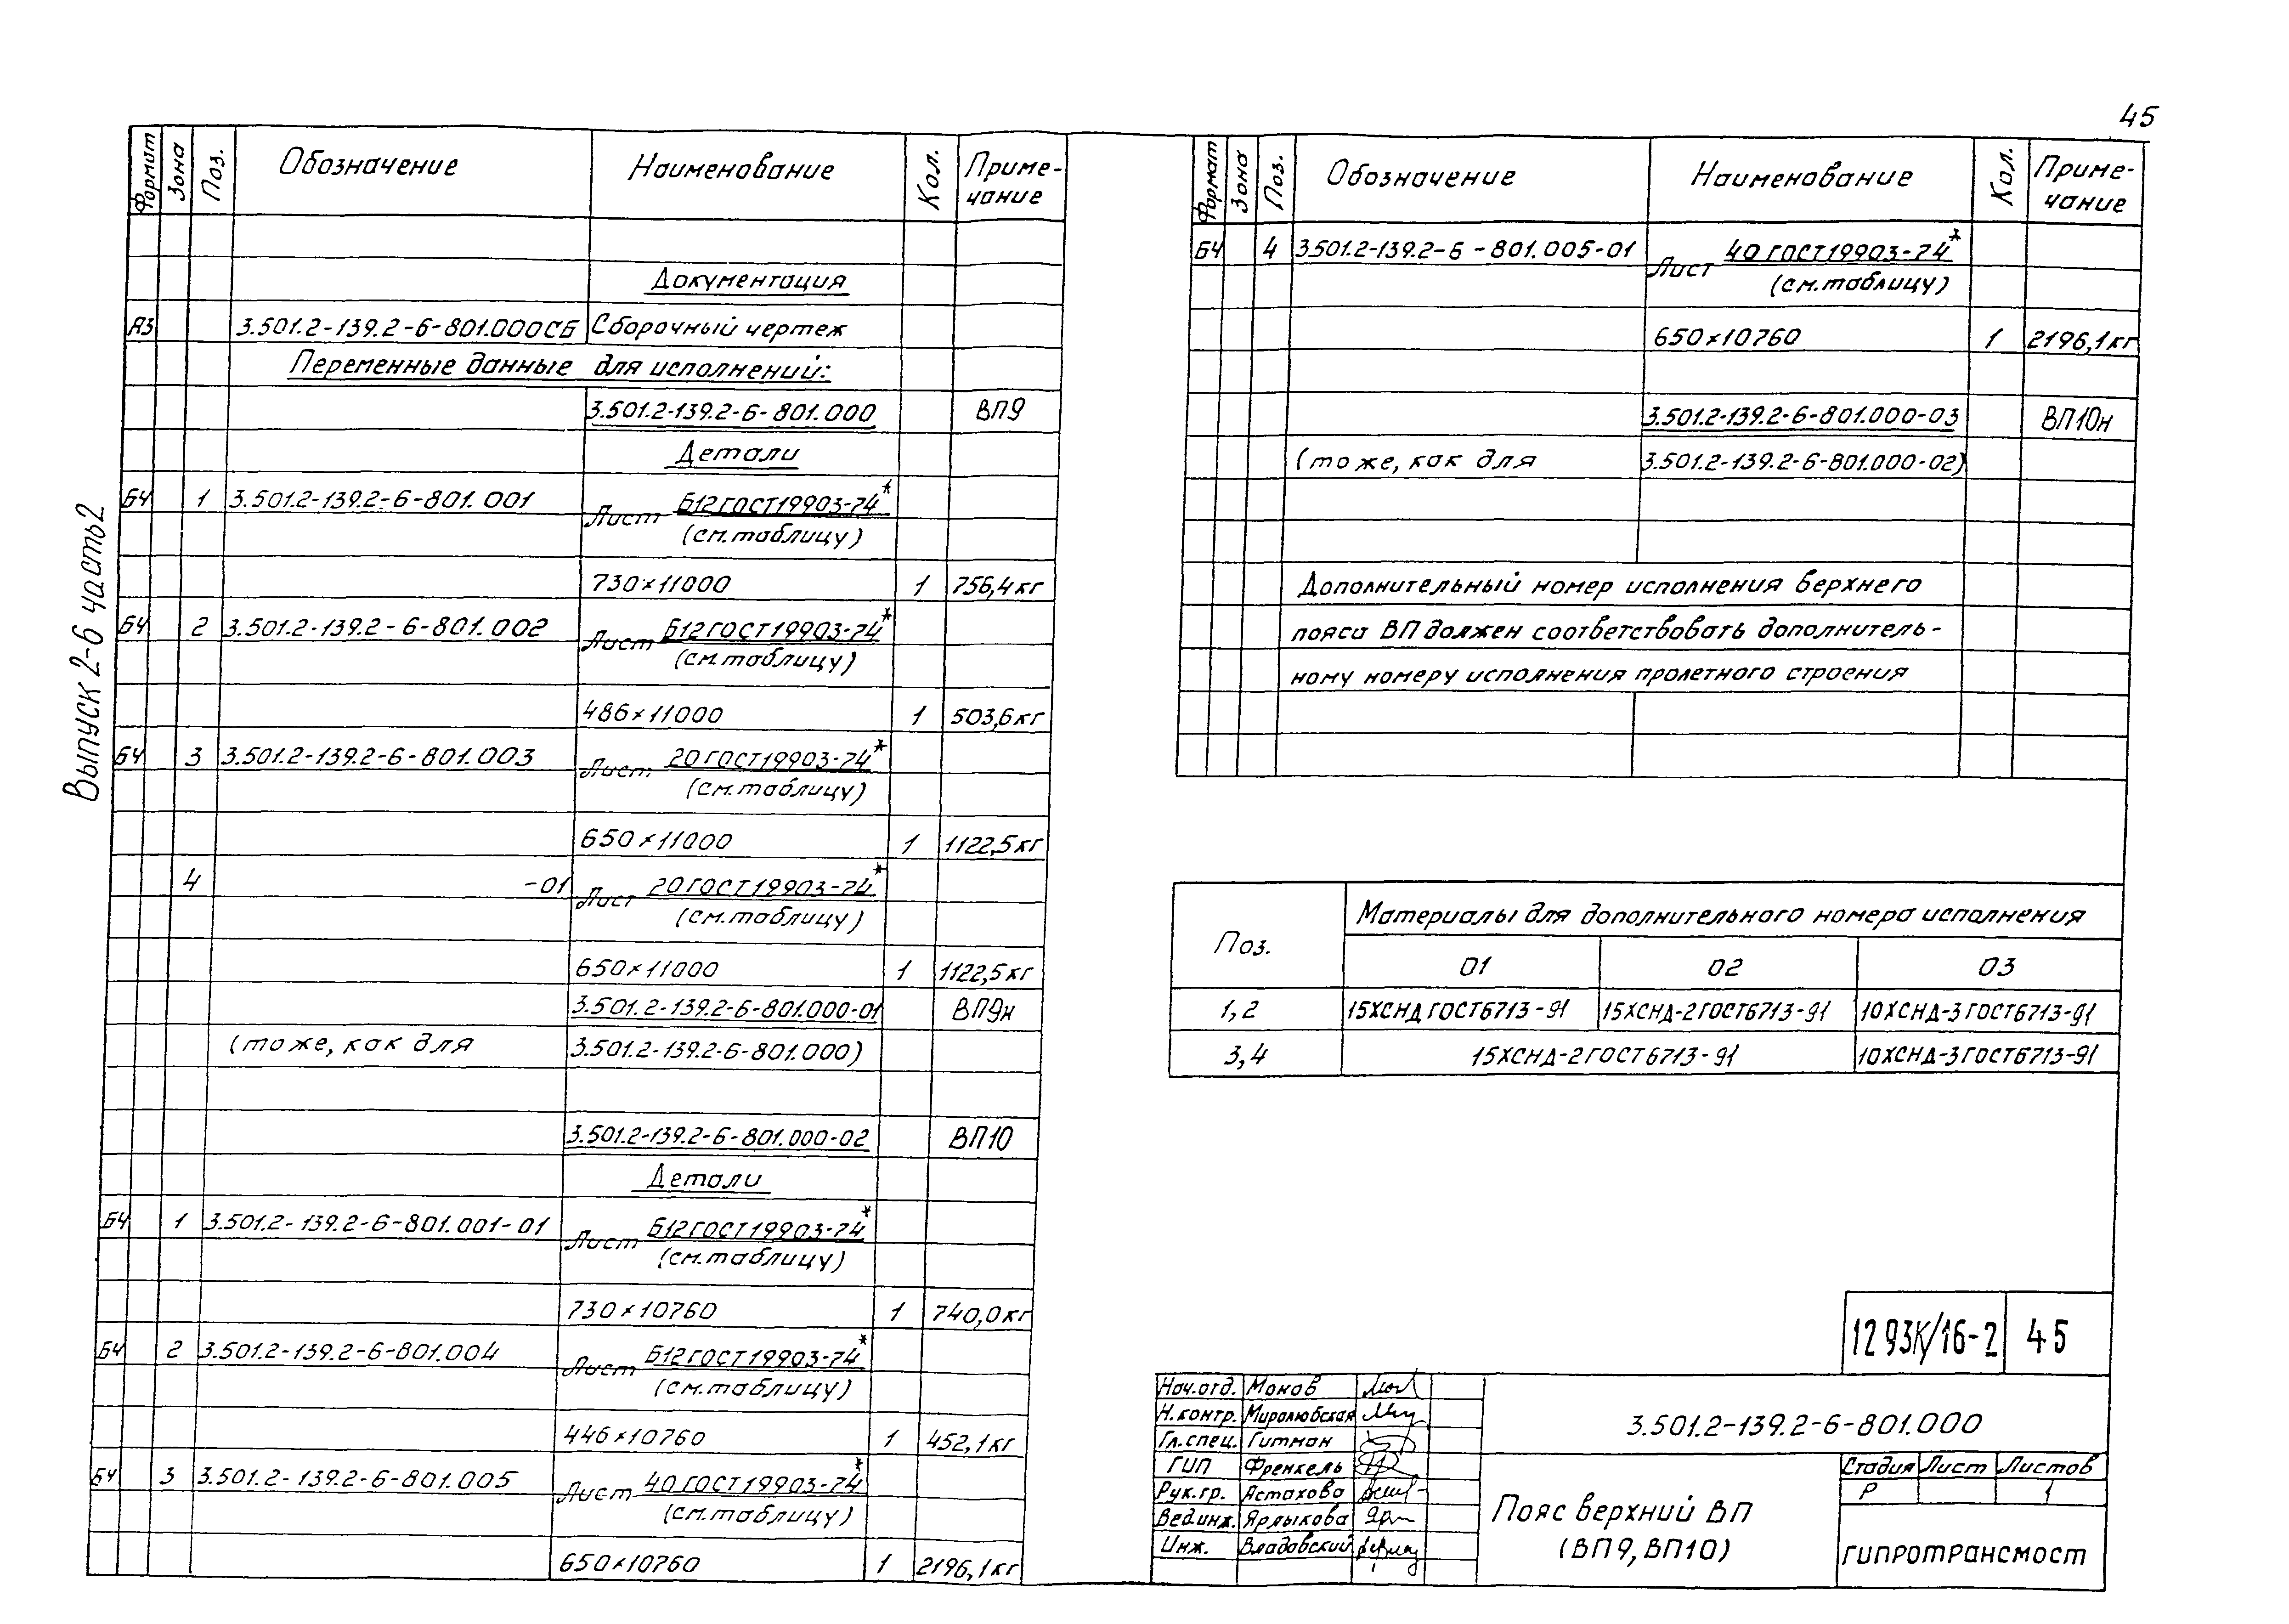 45
Выпуск 2-6 часть 2
Формат Зона Поз. Обозначение Наименование Кол. Приме-
чание
Документация
А3 3.501.2-139.2-6-801.000СБ Сборочный чертеж
Переменные данные для исполнений:
3.501.2-139.2-6-801.000 ВП9
Детали
БЧ 1 3.501.2-139.2-6-801.001 Лист Б12 ГОСТ 19903-74*
(см. таблицу)
730×11000 1 756,4 кг
БЧ 2 3.501.2-139.2-6-801.002 Лист Б12 ГОСТ 19903-74*
(см. таблицу)
486×11000 1 503,6 кг
БЧ 3 3.501.2-139.2-6-801.003 Лист 20 ГОСТ 19903-74*
(см. таблицу)
650×11000 1 1122,5 кг
4 -01 Лист 20 ГОСТ 19903-74*
(см. таблицу)
650×11000 1 1122,5 кг
3.501.2-139.2-6-801.000-01 ВП9н
(тоже, как для 3.501.2-139.2-6-801.000)
3.501.2-139.2-6-801.000-02 ВП10
Детали
БЧ 1 3.501.2-139.2-6-801.001-01 Лист Б12 ГОСТ 19903-74*
(см. таблицу)
730×10760 1 740,0 кг
БЧ 2 3.501.2-139.2-6-801.004 Лист Б12 ГОСТ 19903-74*
(см. таблицу)
446×10760 1 452,1 кг
БЧ 3 3.501.2-139.2-6-801.005 Лист 40 ГОСТ 19903-74*
(см. таблицу)
650×10760 1 2196,1 кг
Формат Зона Поз. Обозначение Наименование Кол. Приме-
чание
БЧ 4 3.501.2-139.2-6-801.005-01 Лист 40 ГОСТ 19903-74*
(см. таблицу)
650×10760 1 2196,1 кг
3.501.2-139.2-6-801.000-03 ВП10н
(тоже, как для 3.501.2-139.2-6-801.000-02)
Дополнительный номер исполнения верхнего
пояса ВП должен соответствовать дополнитель-
ному номеру исполнения пролетного строения
Поз. Материалы для дополнительного номера исполнения
01 02 03
1,2 15ХСНД ГОСТ 6713-91 15ХСНД-2 ГОСТ 6713-91 10ХСНД-3 ГОСТ 6713-91
3,4 15ХСНД-2 ГОСТ 6713-91 10ХСНД-3 ГОСТ 6713-91
1293К/16-2 45
Нач.отд. Монов
Н.контр. Миролюбская
Гл.спец. Гитман
ГИП Френкель
Рук.гр. Астахова
Вед.инж. Ярлыкова
Инж. Владовский
3.501.2-139.2-6-801.000
Пояс верхний ВП
(ВП9, ВП10)
Стадия Лист Листов
Р 1
ГИПРОТРАНСМОСТ